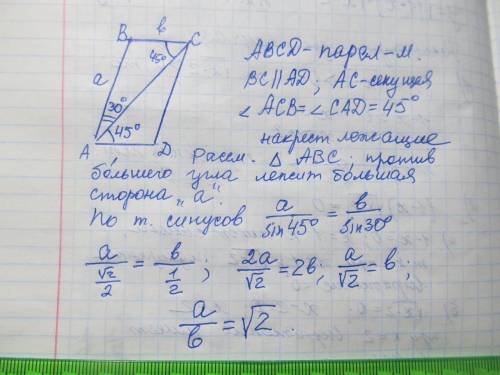 B в C
45°
а
30°
45°
A D
ABCD - парал-м.
BC||AD; AC-секущая
∠ACB=∠CAD=45°
накрест лежащие
Рассм. △ ABC; против
большего угла лежит большая
сторона „а".
По т. синусов a/sin45° = в/sin30°
a/(√2/2) = в/(1/2); 2a/√2 = 2в; a/√2 = в;
a/в = √2.